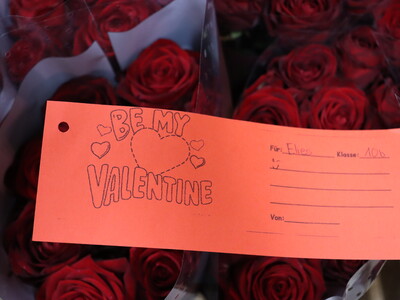 BE MY
VALENTINE
Für: Klasse: 10b
Von: